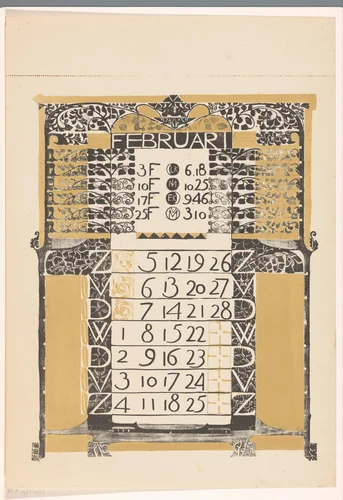 FEBRUARI
3F 6.18
10F M 10.25
17F 9.46
25F M 3.10
Z 5 12 19 26 Z
M 6 13 20 27 M
D 7 14 21 28 D
W 1 8 15 22 W
D 2 9 16 23 D
V 3 10 17 24 V
Z 4 11 18 25 Z